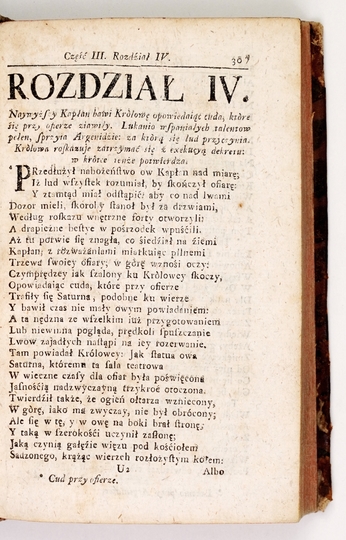 Część III. Rozdział IV. 309
ROZDZIAŁ IV.
Naywyższy Kapłan bawi Krolowę opowiedaiąc cuda, które
się przy oferze ziawiły. Lukanio wspaniałych talentow
pełen, sprzyia Argenidzie: za którą się lud przyczynia.
Krolowa roskazuje zatrzymać się z exekucyą dekretu:
w krótce tenże potwierdza.
Przedłużył nabożeństwo ow Kapłan nad miarę;
Iż lud wszystek rozumiał, by skończył ofiarę:
Y ztamtąd miał odstąpić; aby co nad lwami
Dozor mieli, skoroby stanoł był za drzwiami,
Według roskazu wnętrzne forty otworzyli:
A drapieżne bestye w pośrzodek wpuścili.
Aż tu porwie się znagła, co siedział na ziemi
Kapłan; z rozważaniami miarkuiąc pilnemi
Trzewa swoiey ofiary; w górę wznosi oczy:
Czymprędzey iak szalony ku Krolowey skoczy,
Opowiadaiąc cuda, które przy ofierze
Trafiły się Saturna, podobne ku wierze
Y bawił czas nie mały owym powiadaniem:
A ta nędzna ze wszelkim iuż przygotowaniem
Lub niewinna pogląda, prędkoli spuszczanie
Lwow zajadłych nastąpi na iey rozerwanie.
Tam powiadał Krolowey: Jak statua owa
Saturna, któremu ta sala teatrowa
W wieczne czasy dla ofiar była poświęcona
Jasnością nadzwyczayną trzykroć otoczona.
Twierdził także, że ogień ołtarza wzniecony,
W górę, iako ma zwyczay, nie był obrócony;
Ale się w tę, y w ową na boki brał stronę,
Y taką w szerokości uczynił zasłonę;
Jaką czynią gałęzie więzu pod kościołem
Sadzonego, krążąc wierzch rozłożystym kołem:
U2 Albo
* Cud przy ofierze.